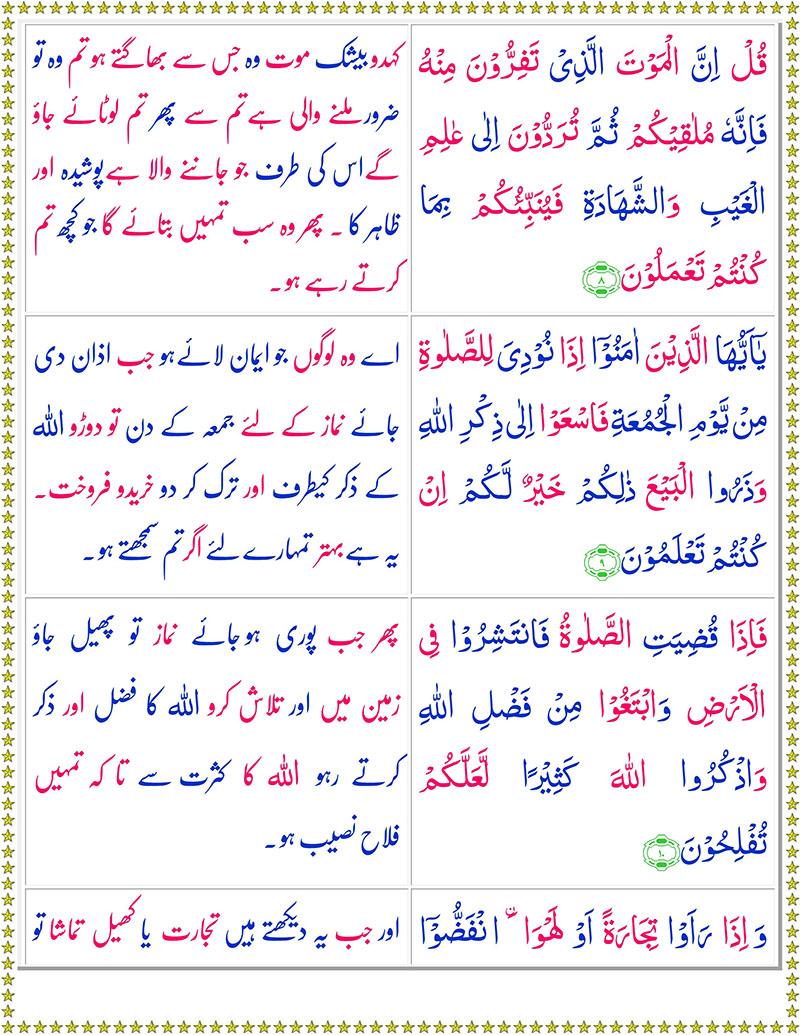 قُلْ اِنَّ الْمَوْتَ الَّذِیْ تَفِرُّوْنَ مِنْهُ
فَاِنَّهٗ مُلٰقِیْكُمْ ثُمَّ تُرَدُّوْنَ اِلٰی عٰلِمِ
الْغَیْبِ وَالشَّهَادَةِ فَیُنَبِّئُكُمْ بِمَا
كُنْتُمْ تَعْمَلُوْنَ ۸
کہدو بیشک موت وہ جس سے بھاگتے ہو تم وہ تو
ضرور ملنے والی ہے تم سے پھر تم لوٹائے جاؤ
گے اس کی طرف جو جاننے والا ہے پوشیدہ اور
ظاہر کا ۔ پھر وہ سب تمہیں بتائے گا جو کچھ تم
کرتے رہے ہو۔
یٰۤاَیُّهَا الَّذِیْنَ اٰمَنُوْۤا اِذَا نُوْدِیَ لِلصَّلٰوةِ
مِنْ یَّوْمِ الْجُمُعَةِ فَاسْعَوْا اِلٰی ذِكْرِ اللّٰهِ
وَذَرُوا الْبَیْعَ ذٰلِكُمْ خَیْرٌ لَّكُمْ اِنْ
كُنْتُمْ تَعْلَمُوْنَ ۹
اے وہ لوگوں جو ایمان لائے ہو جب اذان دی
جائے نماز کے لئے جمعہ کے دن تو دوڑو اللہ
کے ذکر کیطرف اور ترک کر دو خریدو فروخت۔
یہ ہے بہتر تمہارے لئے اگر تم سمجھتے ہو۔
فَاِذَا قُضِیَتِ الصَّلٰوةُ فَانْتَشِرُوْا فِی
الْاَرْضِ وَابْتَغُوْا مِنْ فَضْلِ اللّٰهِ
وَاذْكُرُوا اللّٰهَ كَثِیْرًا لَّعَلَّكُمْ
تُفْلِحُوْنَ ۱۰
پھر جب پوری ہو جائے نماز تو پھیل جاؤ
زمین میں اور تلاش کرو اللہ کا فضل اور ذکر
کرتے رہو اللہ کا کثرت سے تا کہ تمہیں
فلاح نصیب ہو۔
وَ اِذَا رَاَوْا تِجَارَةً اَوْ لَهْوَا ۨ انْفَضُّوْۤا
اور جب یہ دیکھتے ہیں تجارت یا کھیل تماشا تو